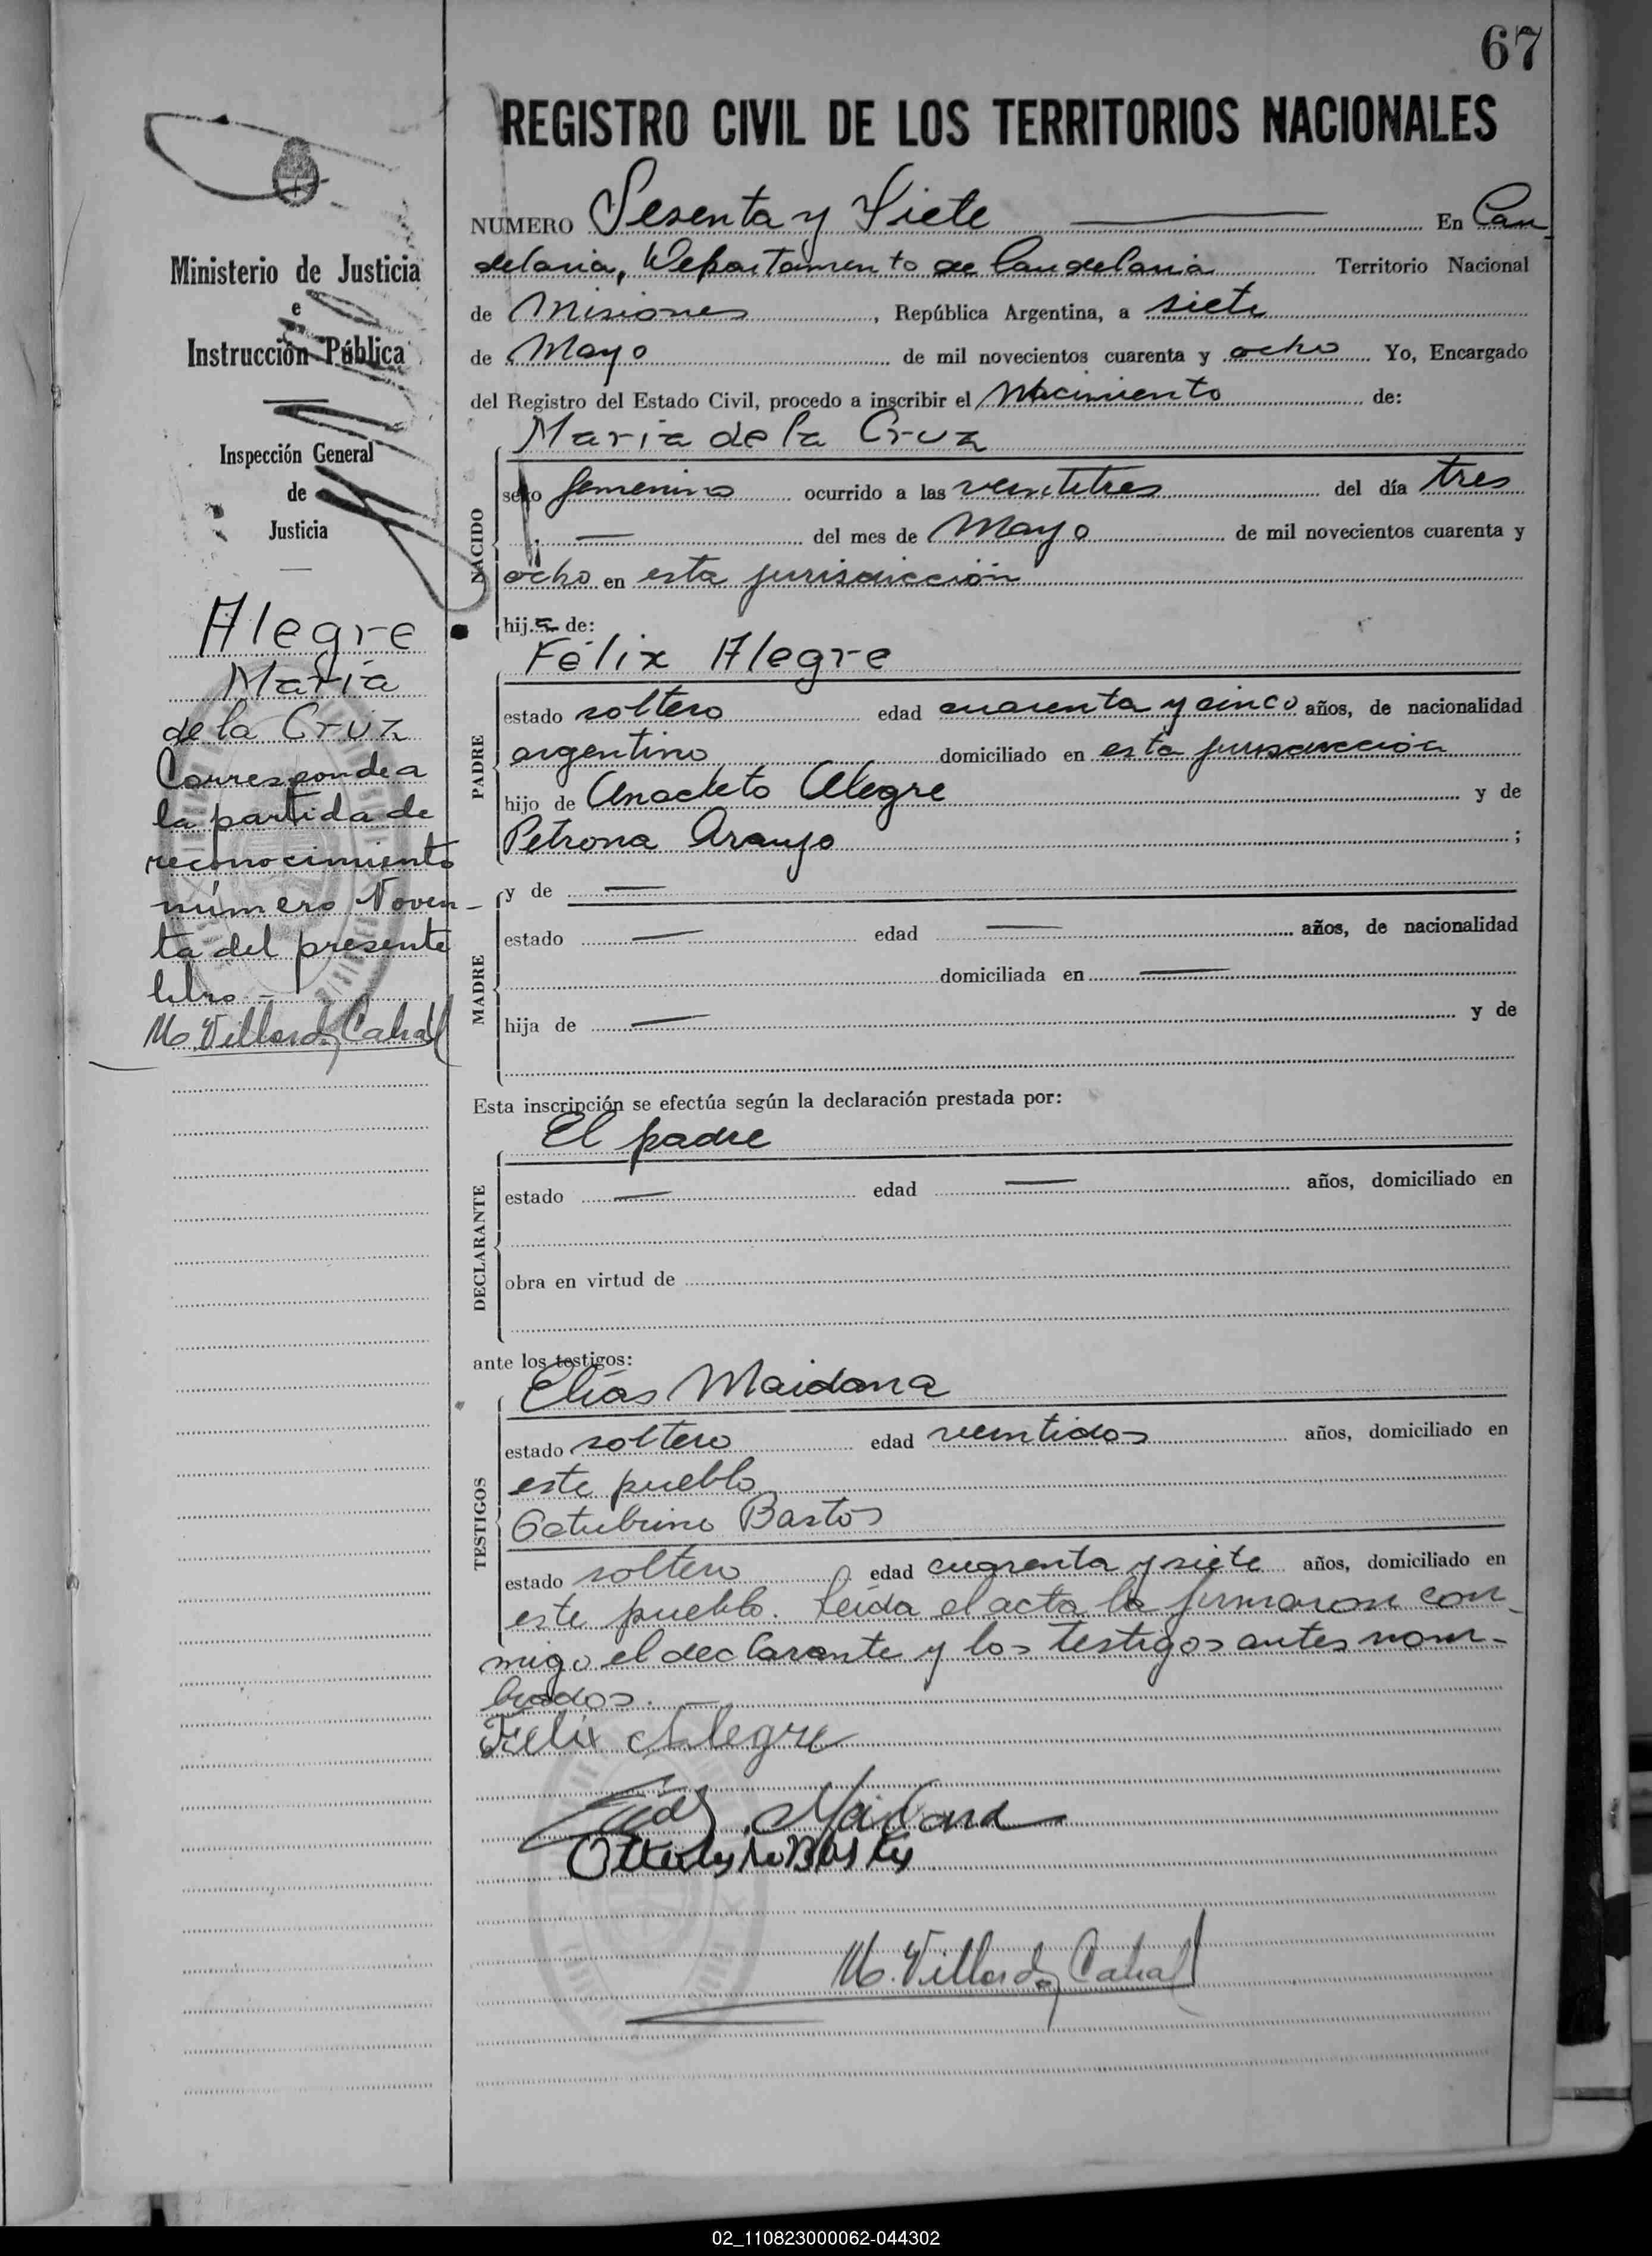 67
REGISTRO CIVIL DE LOS TERRITORIOS NACIONALES
NUMERO Sesenta y Siete En Can
delaria, Departamento de Candelaria Territorio Nacional
de Misiones, República Argentina, a siete
de Mayo de mil novecientos cuarenta y ocho Yo, Encargado
del Registro del Estado Civil, procedo a inscribir el Nacimiento de:
María de la Cruz
NACIDO
sexo femenino ocurrido a las veintitres del día tres
— del mes de Mayo de mil novecientos cuarenta y
ocho en esta jurisdicción
hija de:
Félix Alegre
PADRE
estado soltero edad cuarenta y cinco años, de nacionalidad
argentino domiciliado en esta jurisdicción
hijo de Anacleto Alegre y de
Petrona Araujo ;
MADRE
y de —
estado — edad — años, de nacionalidad
domiciliada en —
hija de — y de
Esta inscripción se efectúa según la declaración prestada por:
El padre
DECLARANTE
estado — edad — años, domiciliado en
obra en virtud de
ante los testigos:
Elías Maidana
TESTIGOS
estado soltero edad veintidos años, domiciliado en
este pueblo
Octubrino Bastos
estado soltero edad cuarenta y siete años, domiciliado en
este pueblo. Leída el acta la firmaron con-
migo el declarante y los testigos antes nom-
brados. —
Felix Alegre
Maidana
M. Villorda Cabral
Ministerio de Justicia
e
Instrucción Pública
Inspección General
de
Justicia
Alegre
María
de la Cruz
Corresponde a
la partida de
reconocimiento
número Noven-
ta del presente
libro -
M. Villorda Cabral
02_110823000062-044302